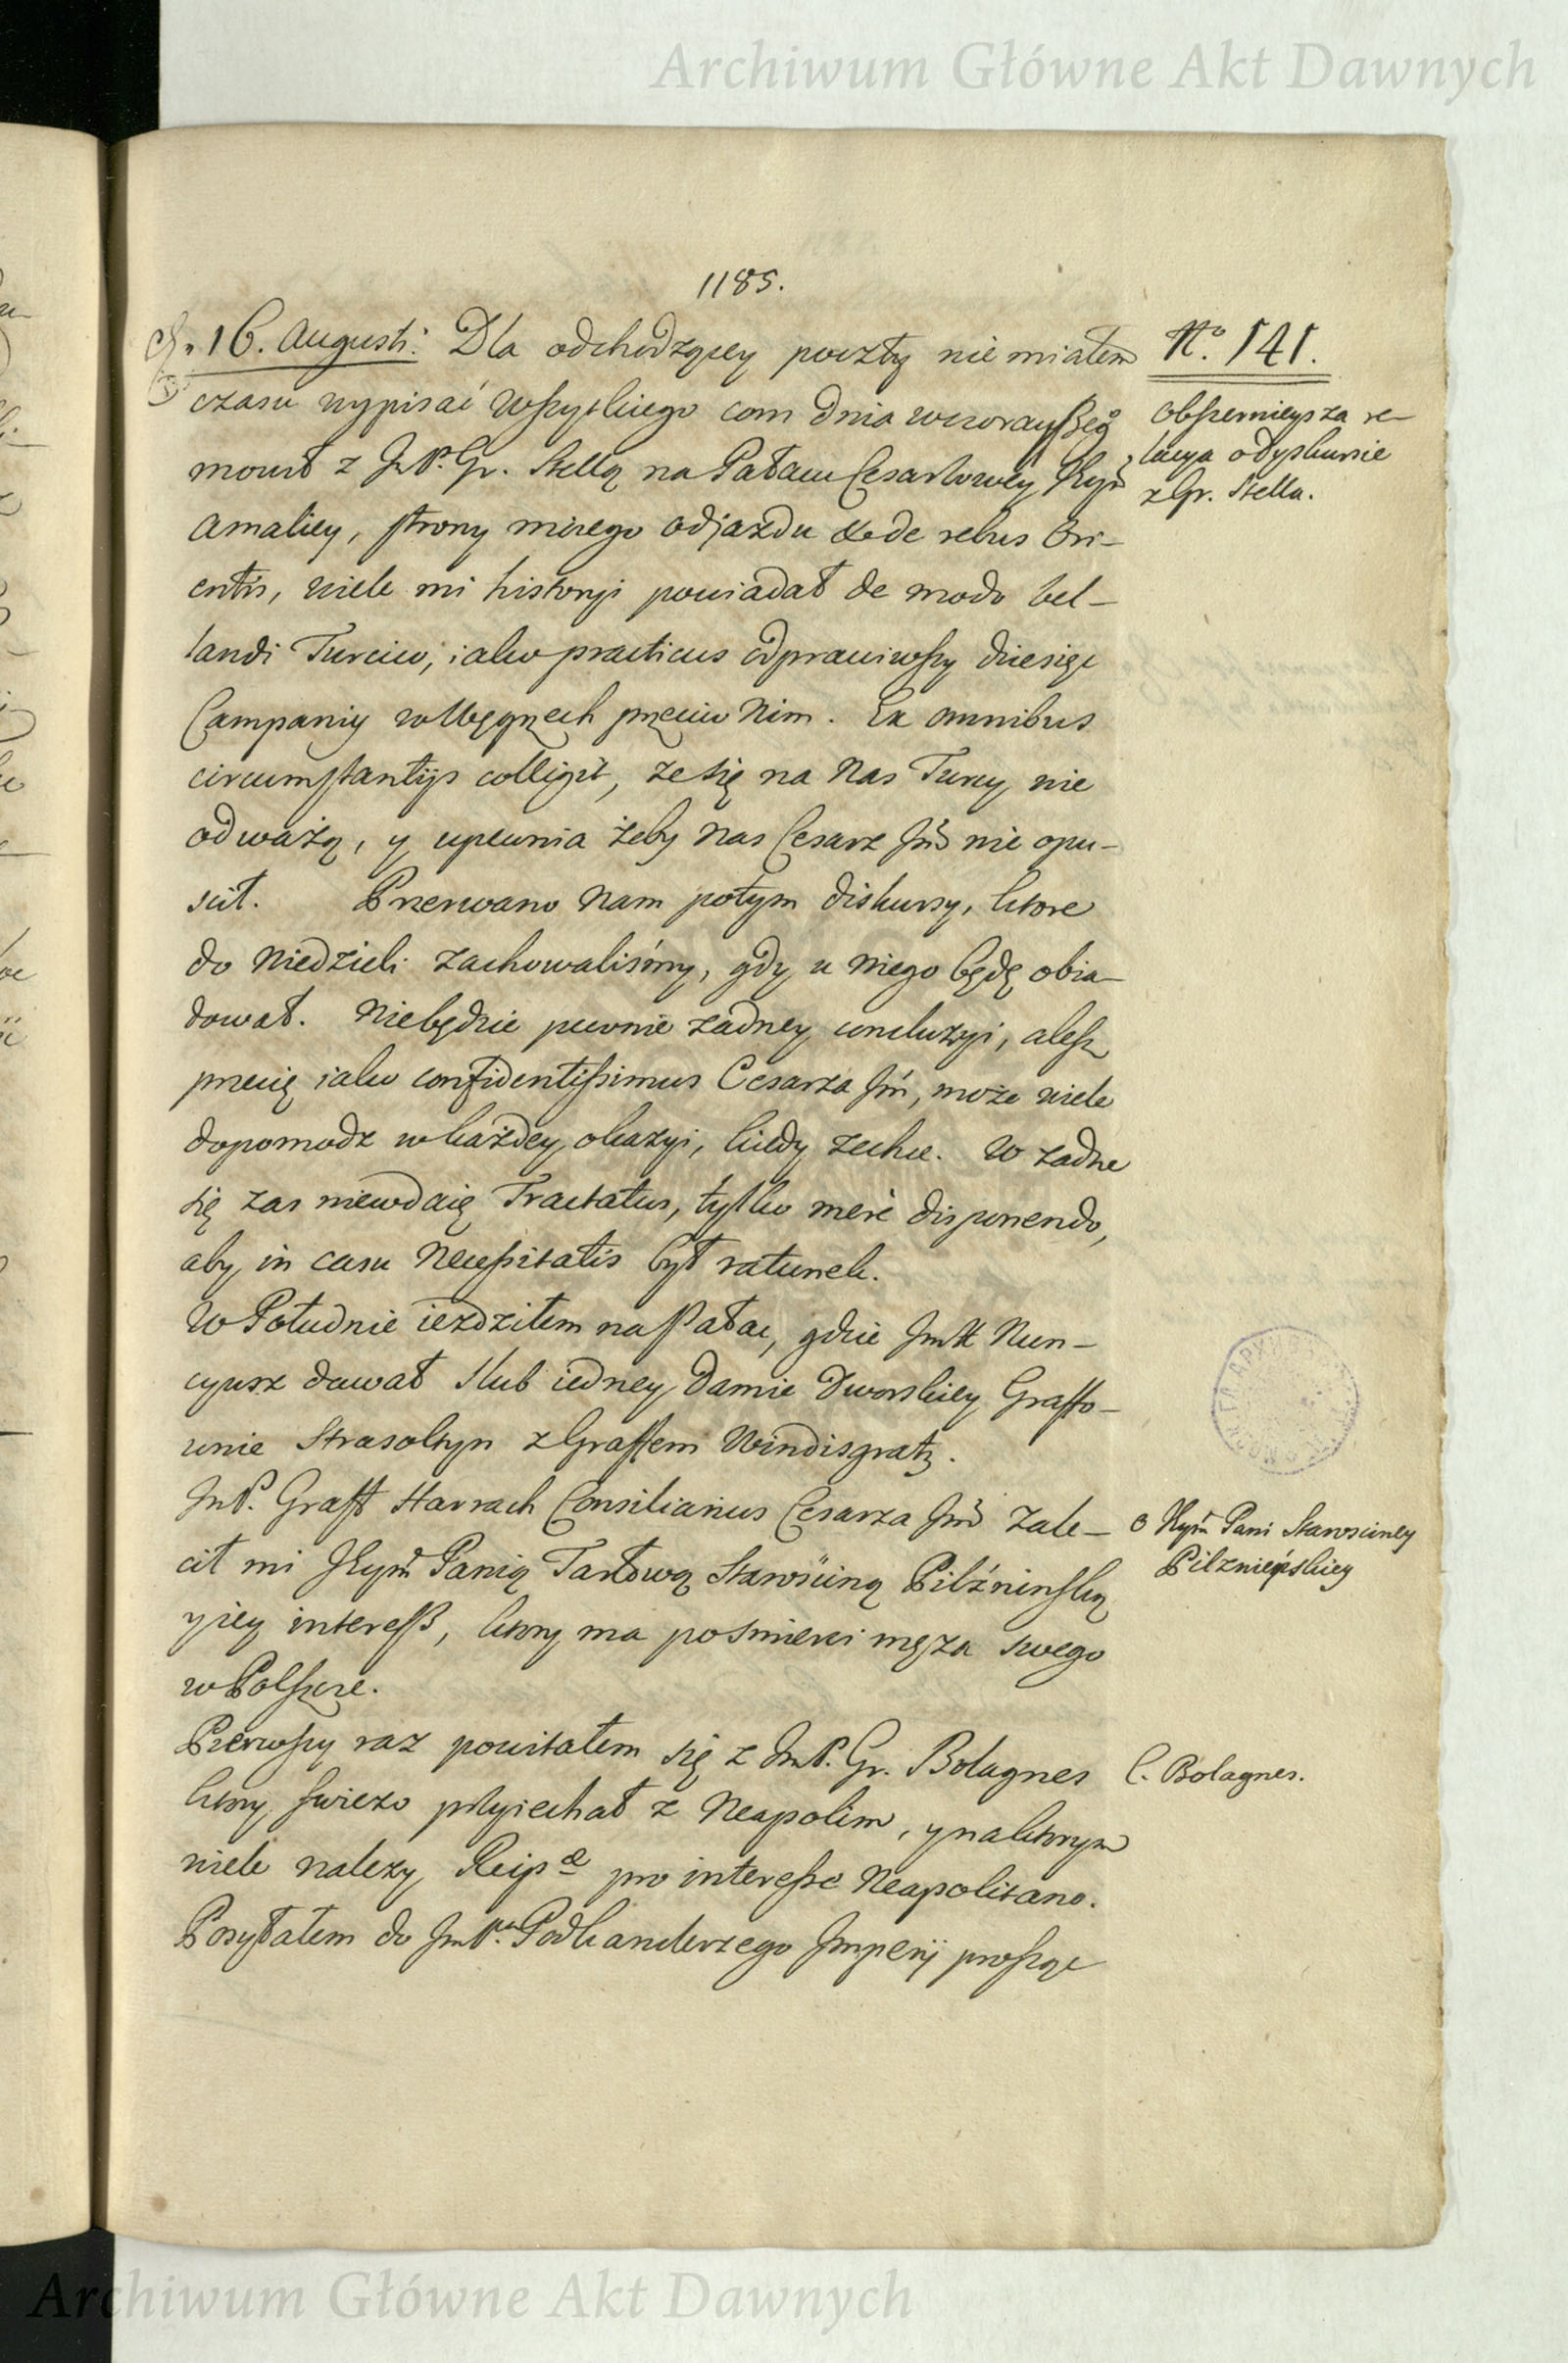 Archiwum Główne Akt Dawnych
1185.
16. Augusti. Dla odchodzącey poczty nie miałem
czasu wypisać wszytkiego com dnia wczorayszeg̊
mowił z JmP. Gr. Stellą na Pałacu Cesarzowey
Amaliey, strony mirego odjazdu de rebus Ori-
entis, wiele mi historyi powiadał de modo bel-
landi Turcico, iako practicus odprawiwszy dziesięć
Campaniy w Węgrzech przeciw Nim. Ex omnibus
circumstantijs colligit, że się na Nas Turcy nie
odważą, y upewnia żeby Nas Cesarz Jmć nie opu-
scił. Przerwano Nam potym diskursy, ktore
do Niedzieli zachowaliśmy, gdy u Niego będę obia-
dował. Niebędzie pewnie żadney concluzyi, alesz
przecię iako confidentissimus Cesarza Jmć, może wiele
dopomodz w każdey okazyi, kiedy zechce. W żadne
się zas niewdaię Tractatus, tylko merè disponendo,
aby in casu Necessitatis był ratunek.
W Południe iezdziłem na Pałac, gdzie JmX Nun-
cyusz dawał Slub iedney Damie Dworskiey Graffo-
wnie Strasoltyn z Graffem Windisgratz.
JmP. Graff Harrach Consiliarius Cesarza Jmć zale-
cił mi Panią Tarłową Starościną Pilźnińską
y iey interess, ktory ma po śmierci męża swego
w Polszcze.
Pierwszy raz powitałem się z JmP. Gr. Bolagnes
ktory swiezo przyiechał z Neapolim, y na ktorym
wiele nalezy Reipæ pro interesse Neapolitano.
Posyłałem do JmPa Podkanclerzego Imperij prosząc
No. 141.
obszernieysza re-
lacya o dyskursie
z Gr. Stella.
o Pani Starosciney
Pilznieńskiey
C. Bolagnes.
Archiwum Główne Akt Dawnych